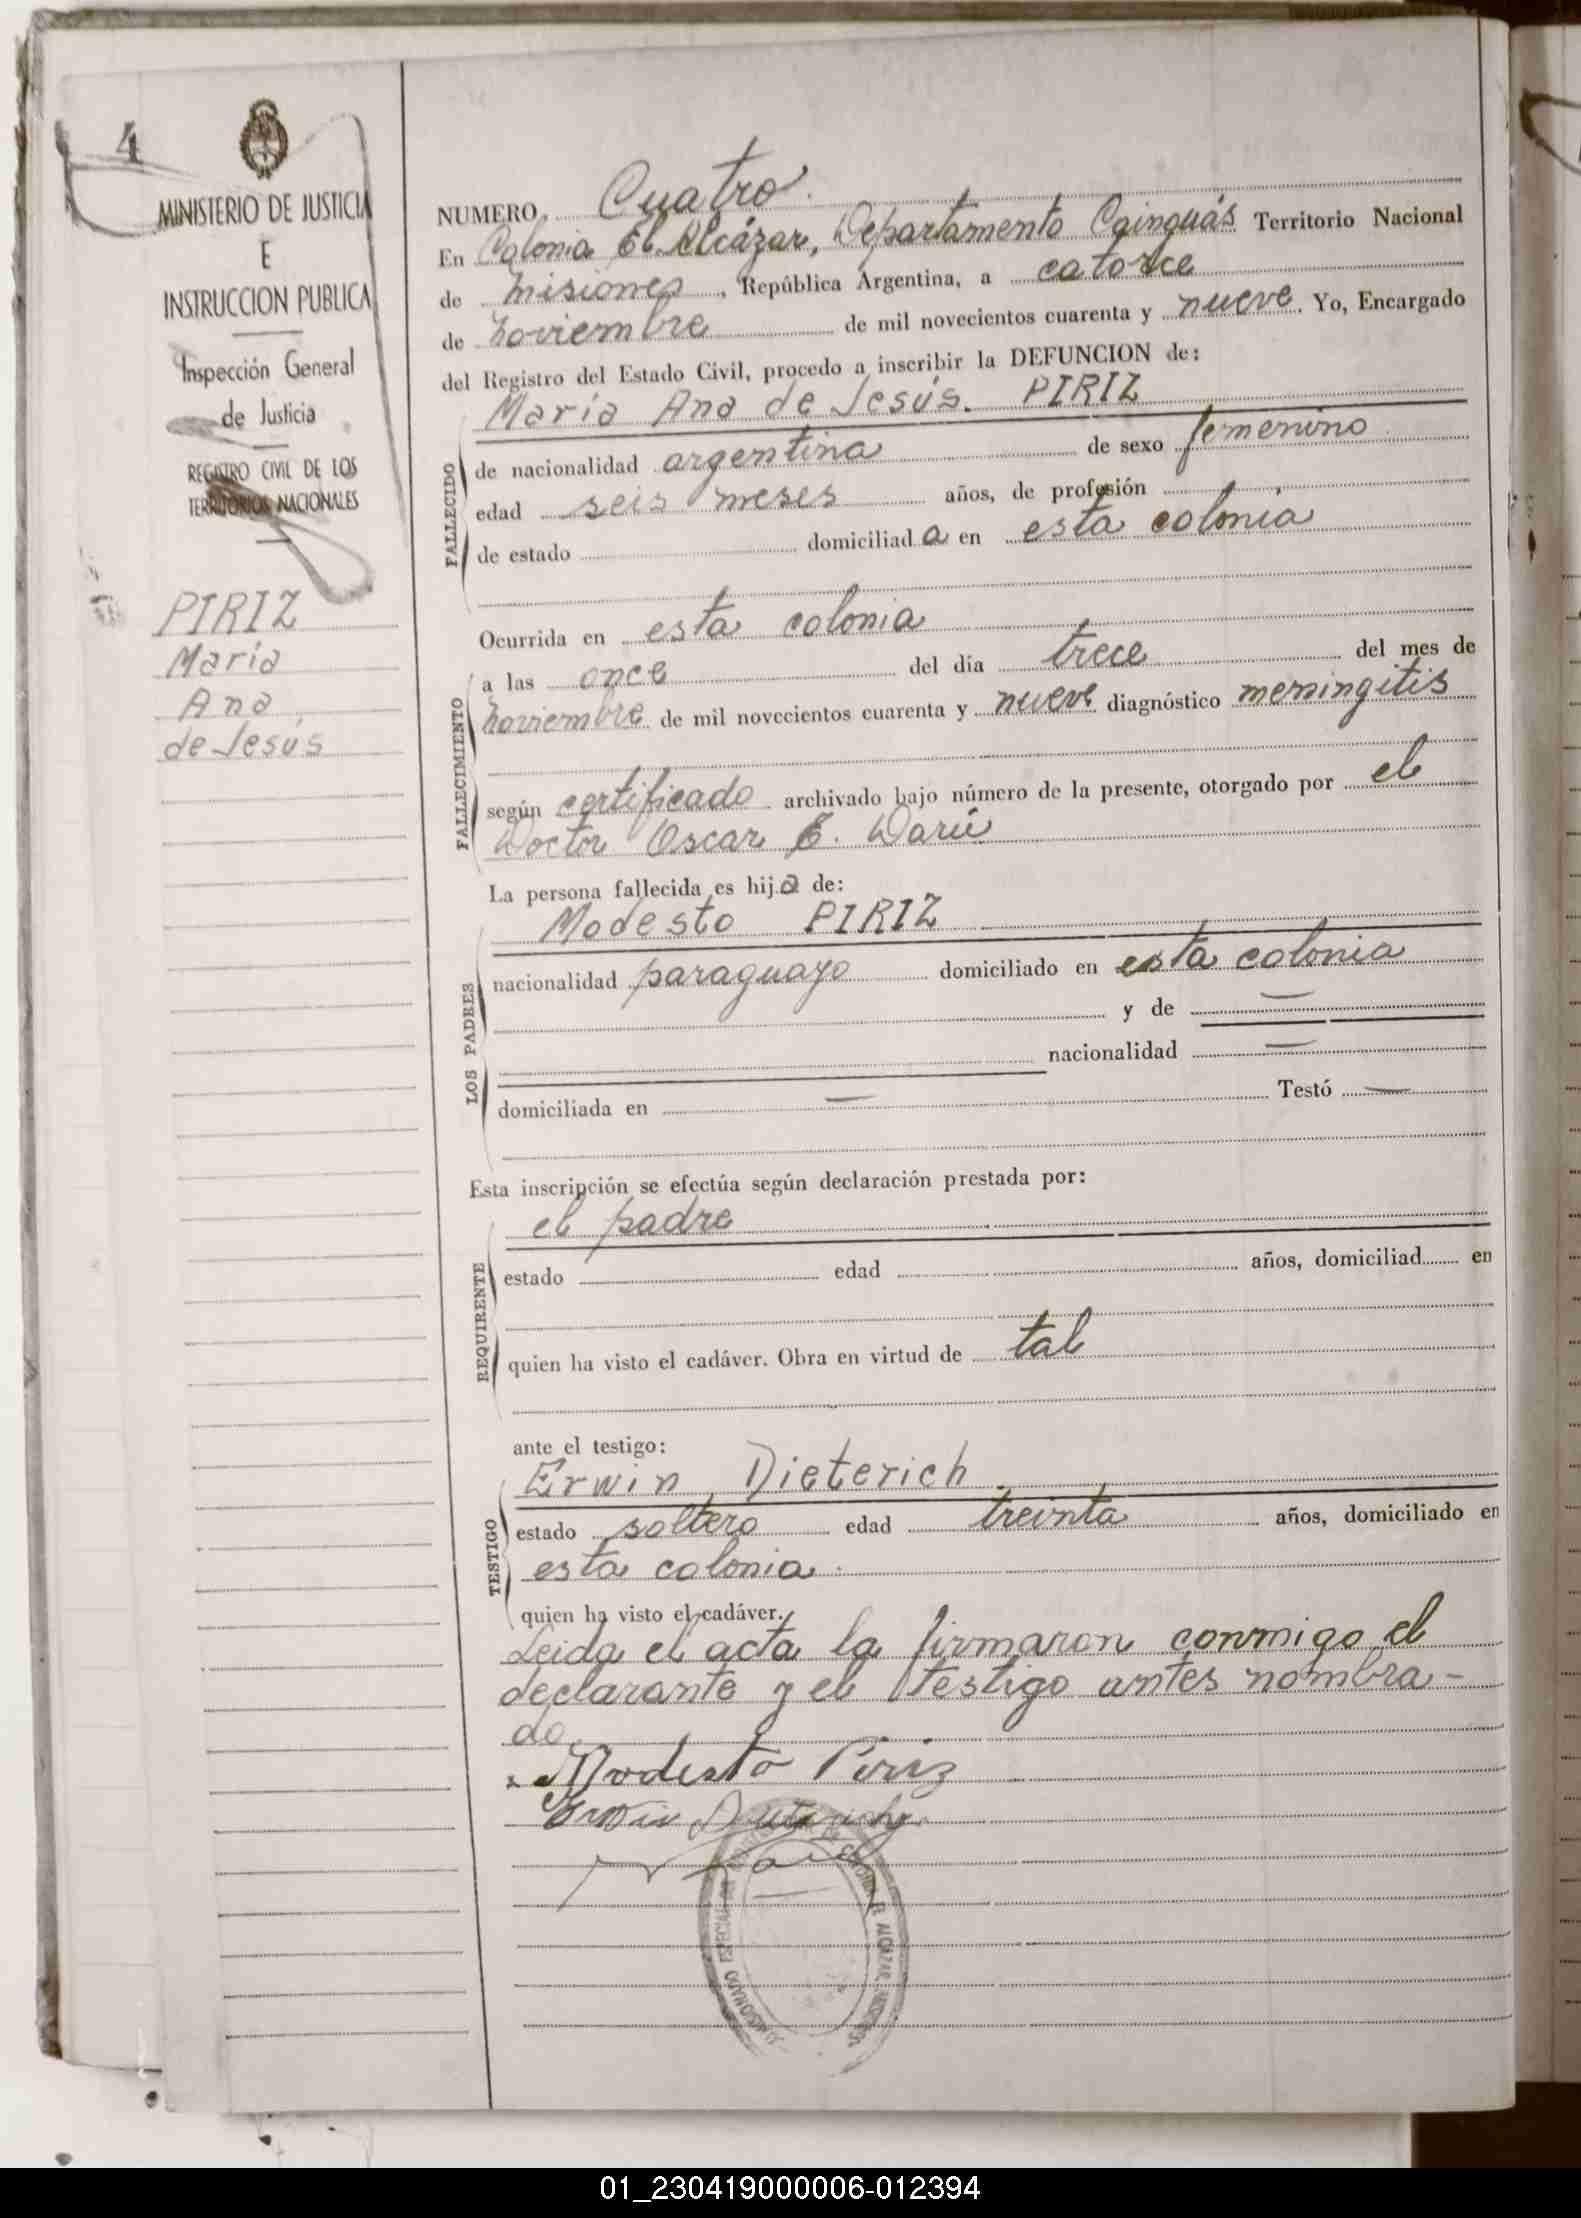 4
MINISTERIO DE JUSTICIA
E
INSTRUCCION PUBLICA
Inspección General
de Justicia
REGISTRO CIVIL DE LOS
TERRITORIOS NACIONALES
PIRIZ
María
Ana
de Jesús
NUMERO Cuatro
En Colonia El Alcázar, Departamento Cainguás Territorio Nacional
de Misiones, República Argentina, a catorce
de noviembre de mil novecientos cuarenta y nueve. Yo, Encargado
del Registro del Estado Civil, procedo a inscribir la DEFUNCION de:
María Ana de Jesús. PIRIZ
FALLECIDO
de nacionalidad argentina de sexo femenino
edad seis meses años, de profesión
de estado domiciliada en esta colonia
FALLECIMIENTO
Ocurrida en esta colonia
a las once del día trece del mes de
noviembre de mil novecientos cuarenta y nueve diagnóstico meningitis
según certificado archivado bajo número de la presente, otorgado por el
Doctor Oscar E. Darú
La persona fallecida es hija de:
LOS PADRES
Modesto PIRIZ
nacionalidad paraguayo domiciliado en esta colonia
y de —
nacionalidad —
domiciliada en — Testó —
Esta inscripción se efectúa según declaración prestada por:
REQUIRENTE
el padre
estado edad años, domiciliad en
quien ha visto el cadáver. Obra en virtud de tal
ante el testigo:
TESTIGO
Erwin Dieterich
estado soltero edad treinta años, domiciliado en
esta colonia.
quien ha visto el cadáver.
Leida el acta la firmaron conmigo el
declarante y el testigo antes nombra-
do.
Modesto Piriz
Erwin Dieterich
ESPECIAL
COLONIA EL ALCAZAR MISIONES
01_230419000006-012394